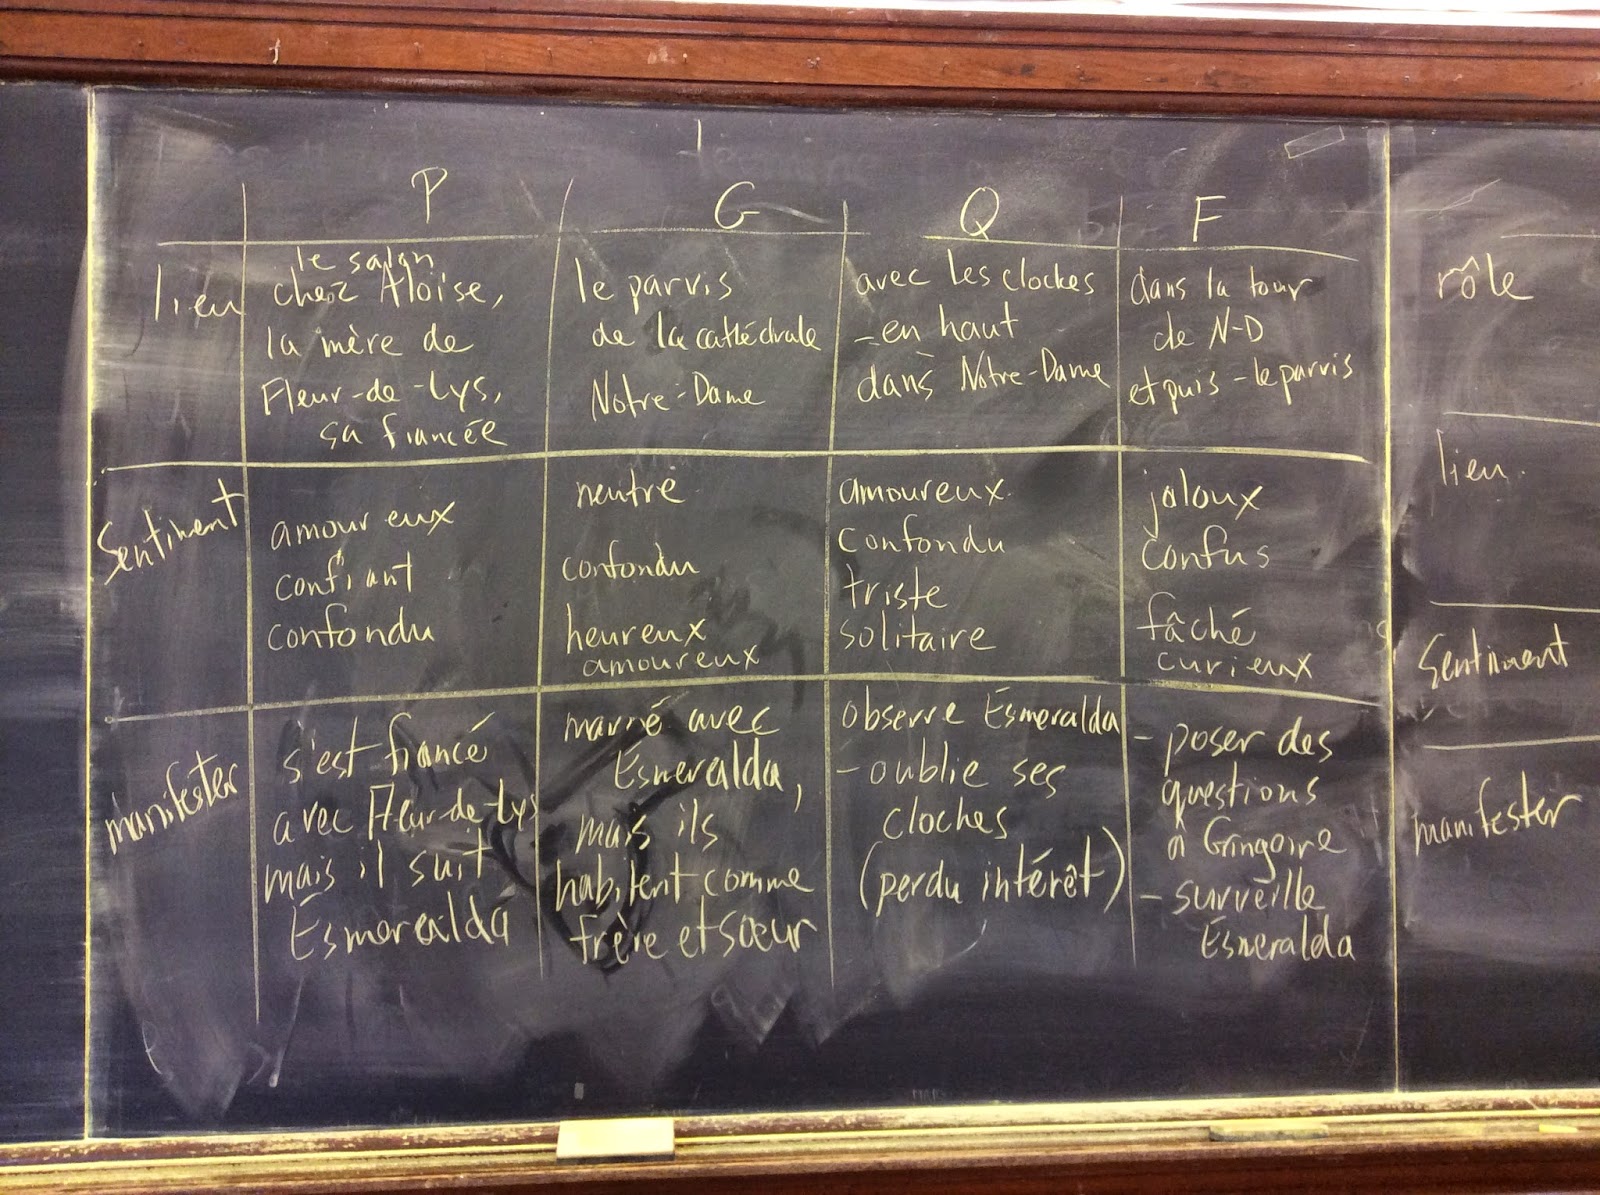 P G Q F
lien
le salon
chez Aloïse,
la mère de
Fleur-de-Lys,
sa fiancée
le parvis
de la cathédrale
Notre-Dame
avec les cloches
- en haut
dans Notre-Dame
dans la tour
de N-D
et puis - le parvis
Sentiment
amoureux
confiant
confondu
neutre
confondu
heureux
amoureux
amoureux
confondu
triste
solitaire
jaloux
confus
fâché
curieux
manifester
s'est fiancé
avec Fleur-de-Lys
mais il suit
Esmeralda
marié avec
Esmeralda,
mais ils
habitent comme
frère et sœur
observe Esmeralda
- oublie ses
cloches
(perdu intérêt)
- poser des
questions
à Gringoire
- surveille
Esmeralda
rôle
lien
Sentiment
manifester